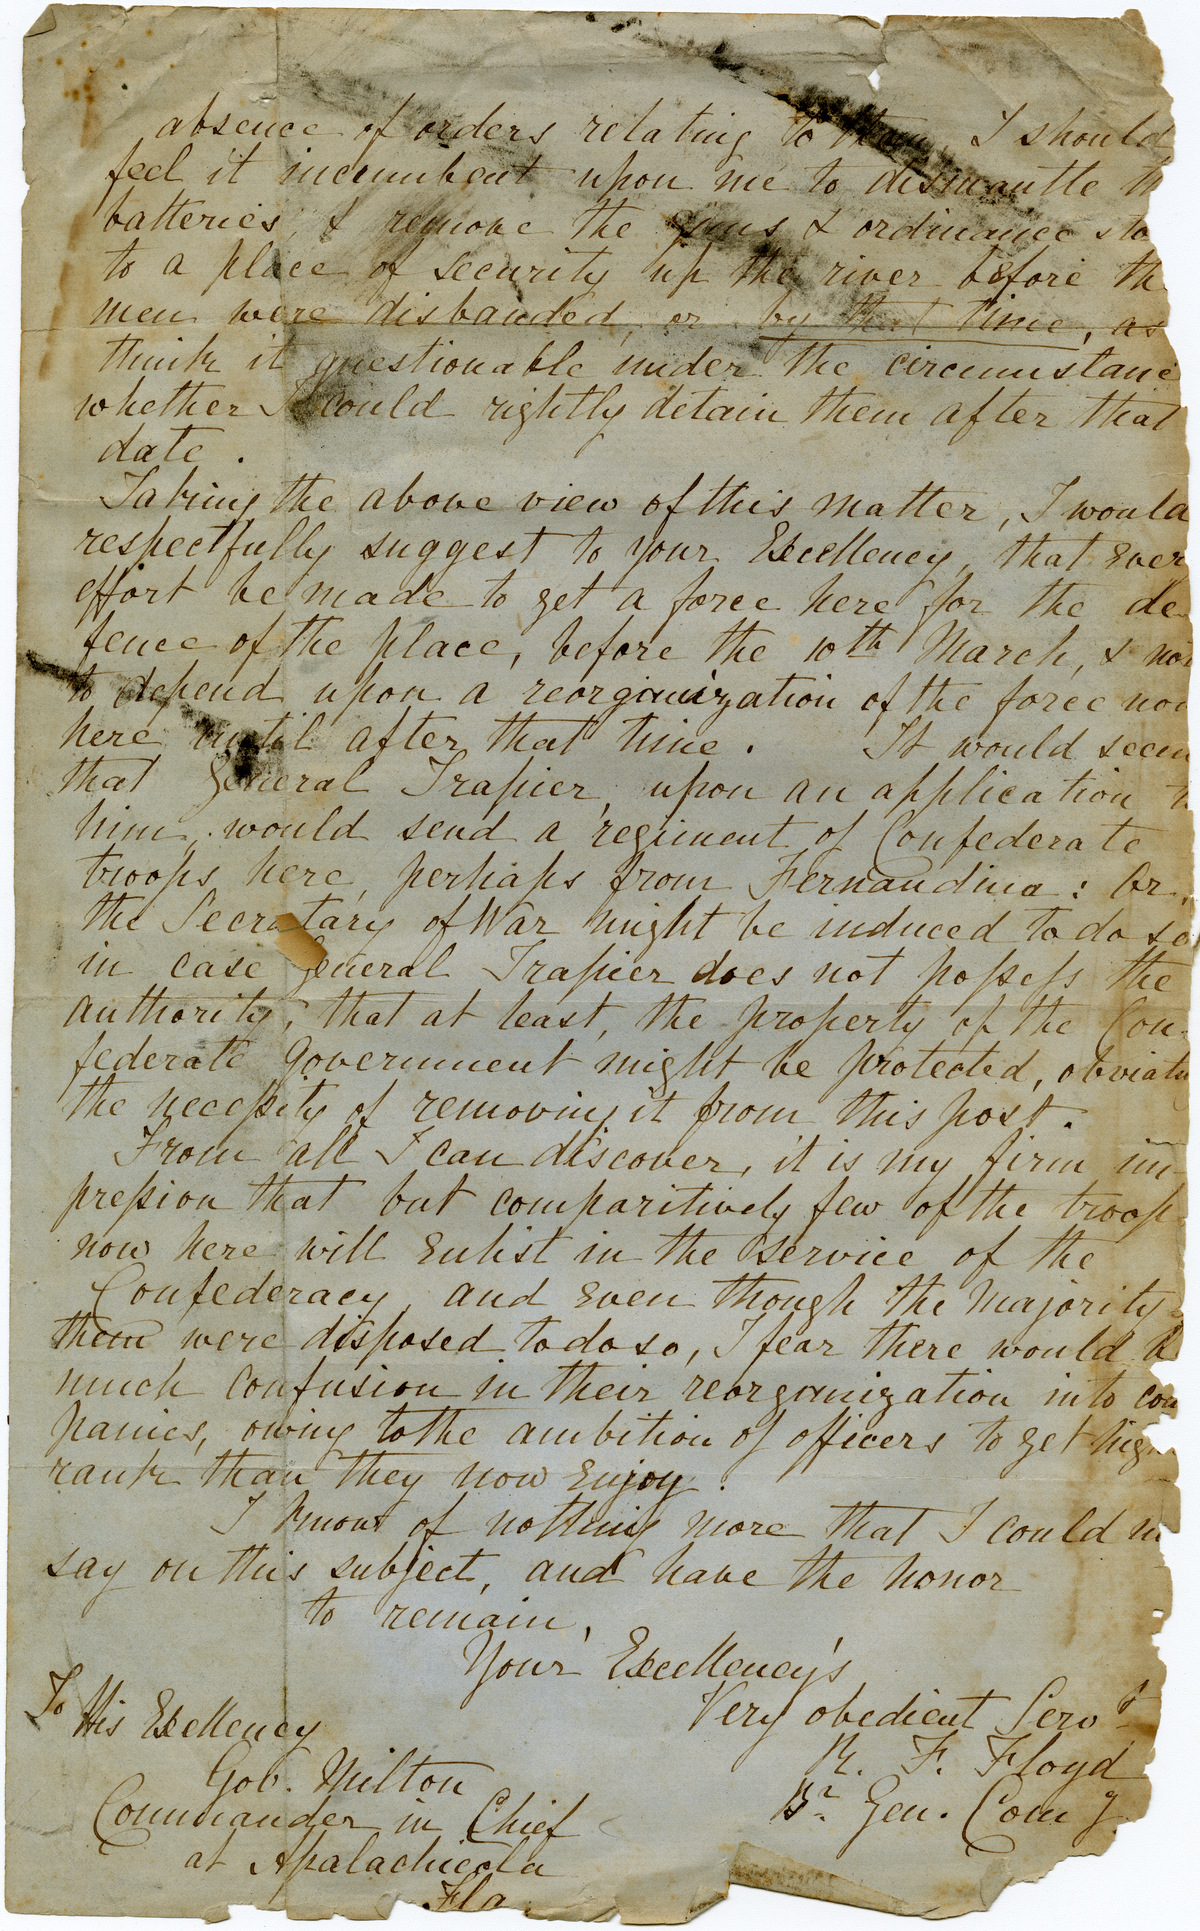 absence of orders relating to them, I should
feel it incumbent upon me to dismantle th
batteries, & remove the guns & ordinance sto
to a place of security up the river before th
men were disbanded, or by that time, as
think it questionable under the circumstanc
whether I could rightly detain them after that
date.
Taking the above view of this matter, I would
respectfully suggest to your Excellency, that ever
effort be made to get a force here for the de-
fence of the place, before the 10th March, & not
to depend upon a reorganization of the force now
here until after that time. It would seem
that General Trapier, upon an application t
him, would send a regiment of Confederate
troops here, perhaps from Fernandina: Or,
the Secretary of War might be induced to do so
in case General Trapier does not possess the
authority, that at least, the property of the Con-
federate Government might be protected, obviatin
the necessity of removing it from this post.
From all I can discover, it is my firm im-
pression that but comparitively few of the troop
now here will enlist in the service of the
Confederacy, and even though the majority
them were disposed to do so, I fear there would b
much confusion in their reorganization into com
panies, owing to the ambition of officers to get high
rank than they now enjoy.
I know of nothing more that I could n
say on this subject, and have the honor
to remain,
Your Excellency's
Very obedient Servt
R. F. Floyd
Br. Gen. Comg.
To His Excellency
Gov. Milton
Commander in Chief
at Apalachicola
Fla.